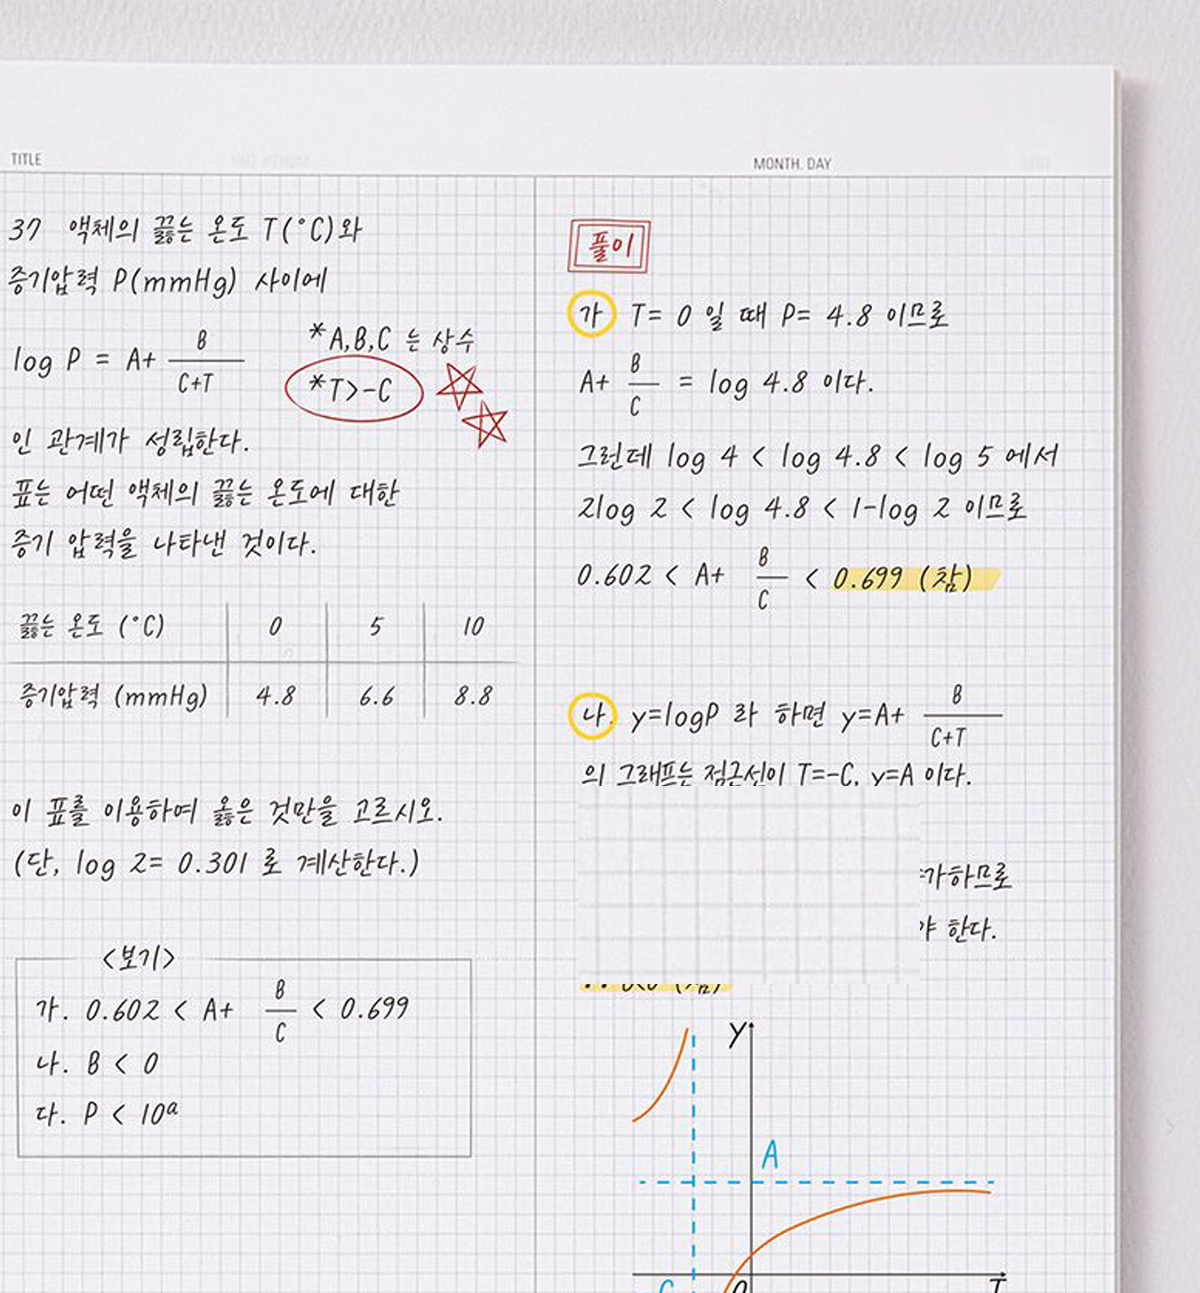 TITLE
MONTH. DAY
37 액체의 끓는 온도 T(°C)와
증기압력 P(mmHg) 사이에
log P = A+ B/(C+T)
*A,B,C 는 상수
*T>-C
인 관계가 성립한다.
표는 어떤 액체의 끓는 온도에 대한
증기 압력을 나타낸 것이다.
끓는 온도 (°C) 0 5 10
증기압력 (mmHg) 4.8 6.6 8.8
이 표를 이용하여 옳은 것만을 고르시오.
(단, log 2= 0.301 로 계산한다.)
<보기>
가. 0.602 < A+ B/C < 0.699
나. B < 0
다. P < 10ᵃ
풀이
가 T= 0 일 때 P= 4.8 이므로
A+ B/C = log 4.8 이다.
그런데 log 4 < log 4.8 < log 5 에서
2log 2 < log 4.8 < 1-log 2 이므로
0.602 < A+ B/C < 0.699 (참)
나. y=logP 라 하면 y=A+ B/(C+T)
의 그래프는 점근선이 T=-C, y=A 이다.
가하므로
야 한다.
y
A
-C O T